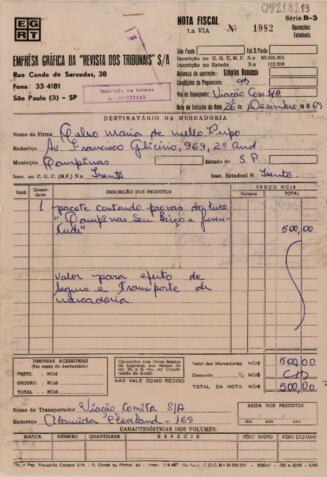 CMP2.1.8.219
EGRT
NOTA FISCAL
Série B-3
1.a VIA
Nº 1982
Operações Estaduais
EMPRÊSA GRÁFICA DA "REVISTA DOS TRIBUNAIS" S/A
Rua Conde de Sarzedas, 38
Fone: 33 4181
São Paulo (3) - SP
São Paulo
Est. S. Paulo
Inscrição no C. G. C. M. F.)
Inscrição no Estado
Natureza da operação: Simples Remessa
Condições de Pagamento:
Via de Transporte: Viação Com. S/A
Data da Emissão da Nota 26 de Dezembro de 69
DESTINATÁRIO DA MERCADORIA
Nome da Firma Celso Maria de Mello Pupo
Enderêço Av. Francisco Glicério, 964, 2º And
Município Campinas Estado S. P.
Insc. no C. G. C. (M F.) N.o Isento Insc. Estadual N. Isento.
Quantidade
DISCRIMINAÇÃO DOS PRODUTOS
PREÇO NCr$
Unitário
TOTAL
1 pacote contendo provas do livro
"Campinas Seu Berço e Juventude"
500,00
Valor para efeito de
Seguro e Transporte da
mercadoria.
DESPESAS ACESSÓRIAS
FRETE
SEGURO NCr$
NÃO VALE COMO RECIBO
Valor das Mercadorias NCr$ 500,00
Desconto % NCr$
TOTAL DA NOTA NCr$ 500,00
Nome do Transportador Viação Cometa S/A
Enderêço Alameda Cleveland - 169
SAÍDA DOS PRODUTOS
CARACTERÍSTICAS DOS VOLUMES
MARCA
NÚMERO
QUANTIDADE
ESPÉCIE
PÊSO BRUTO
PÊSO LÍQUIDO